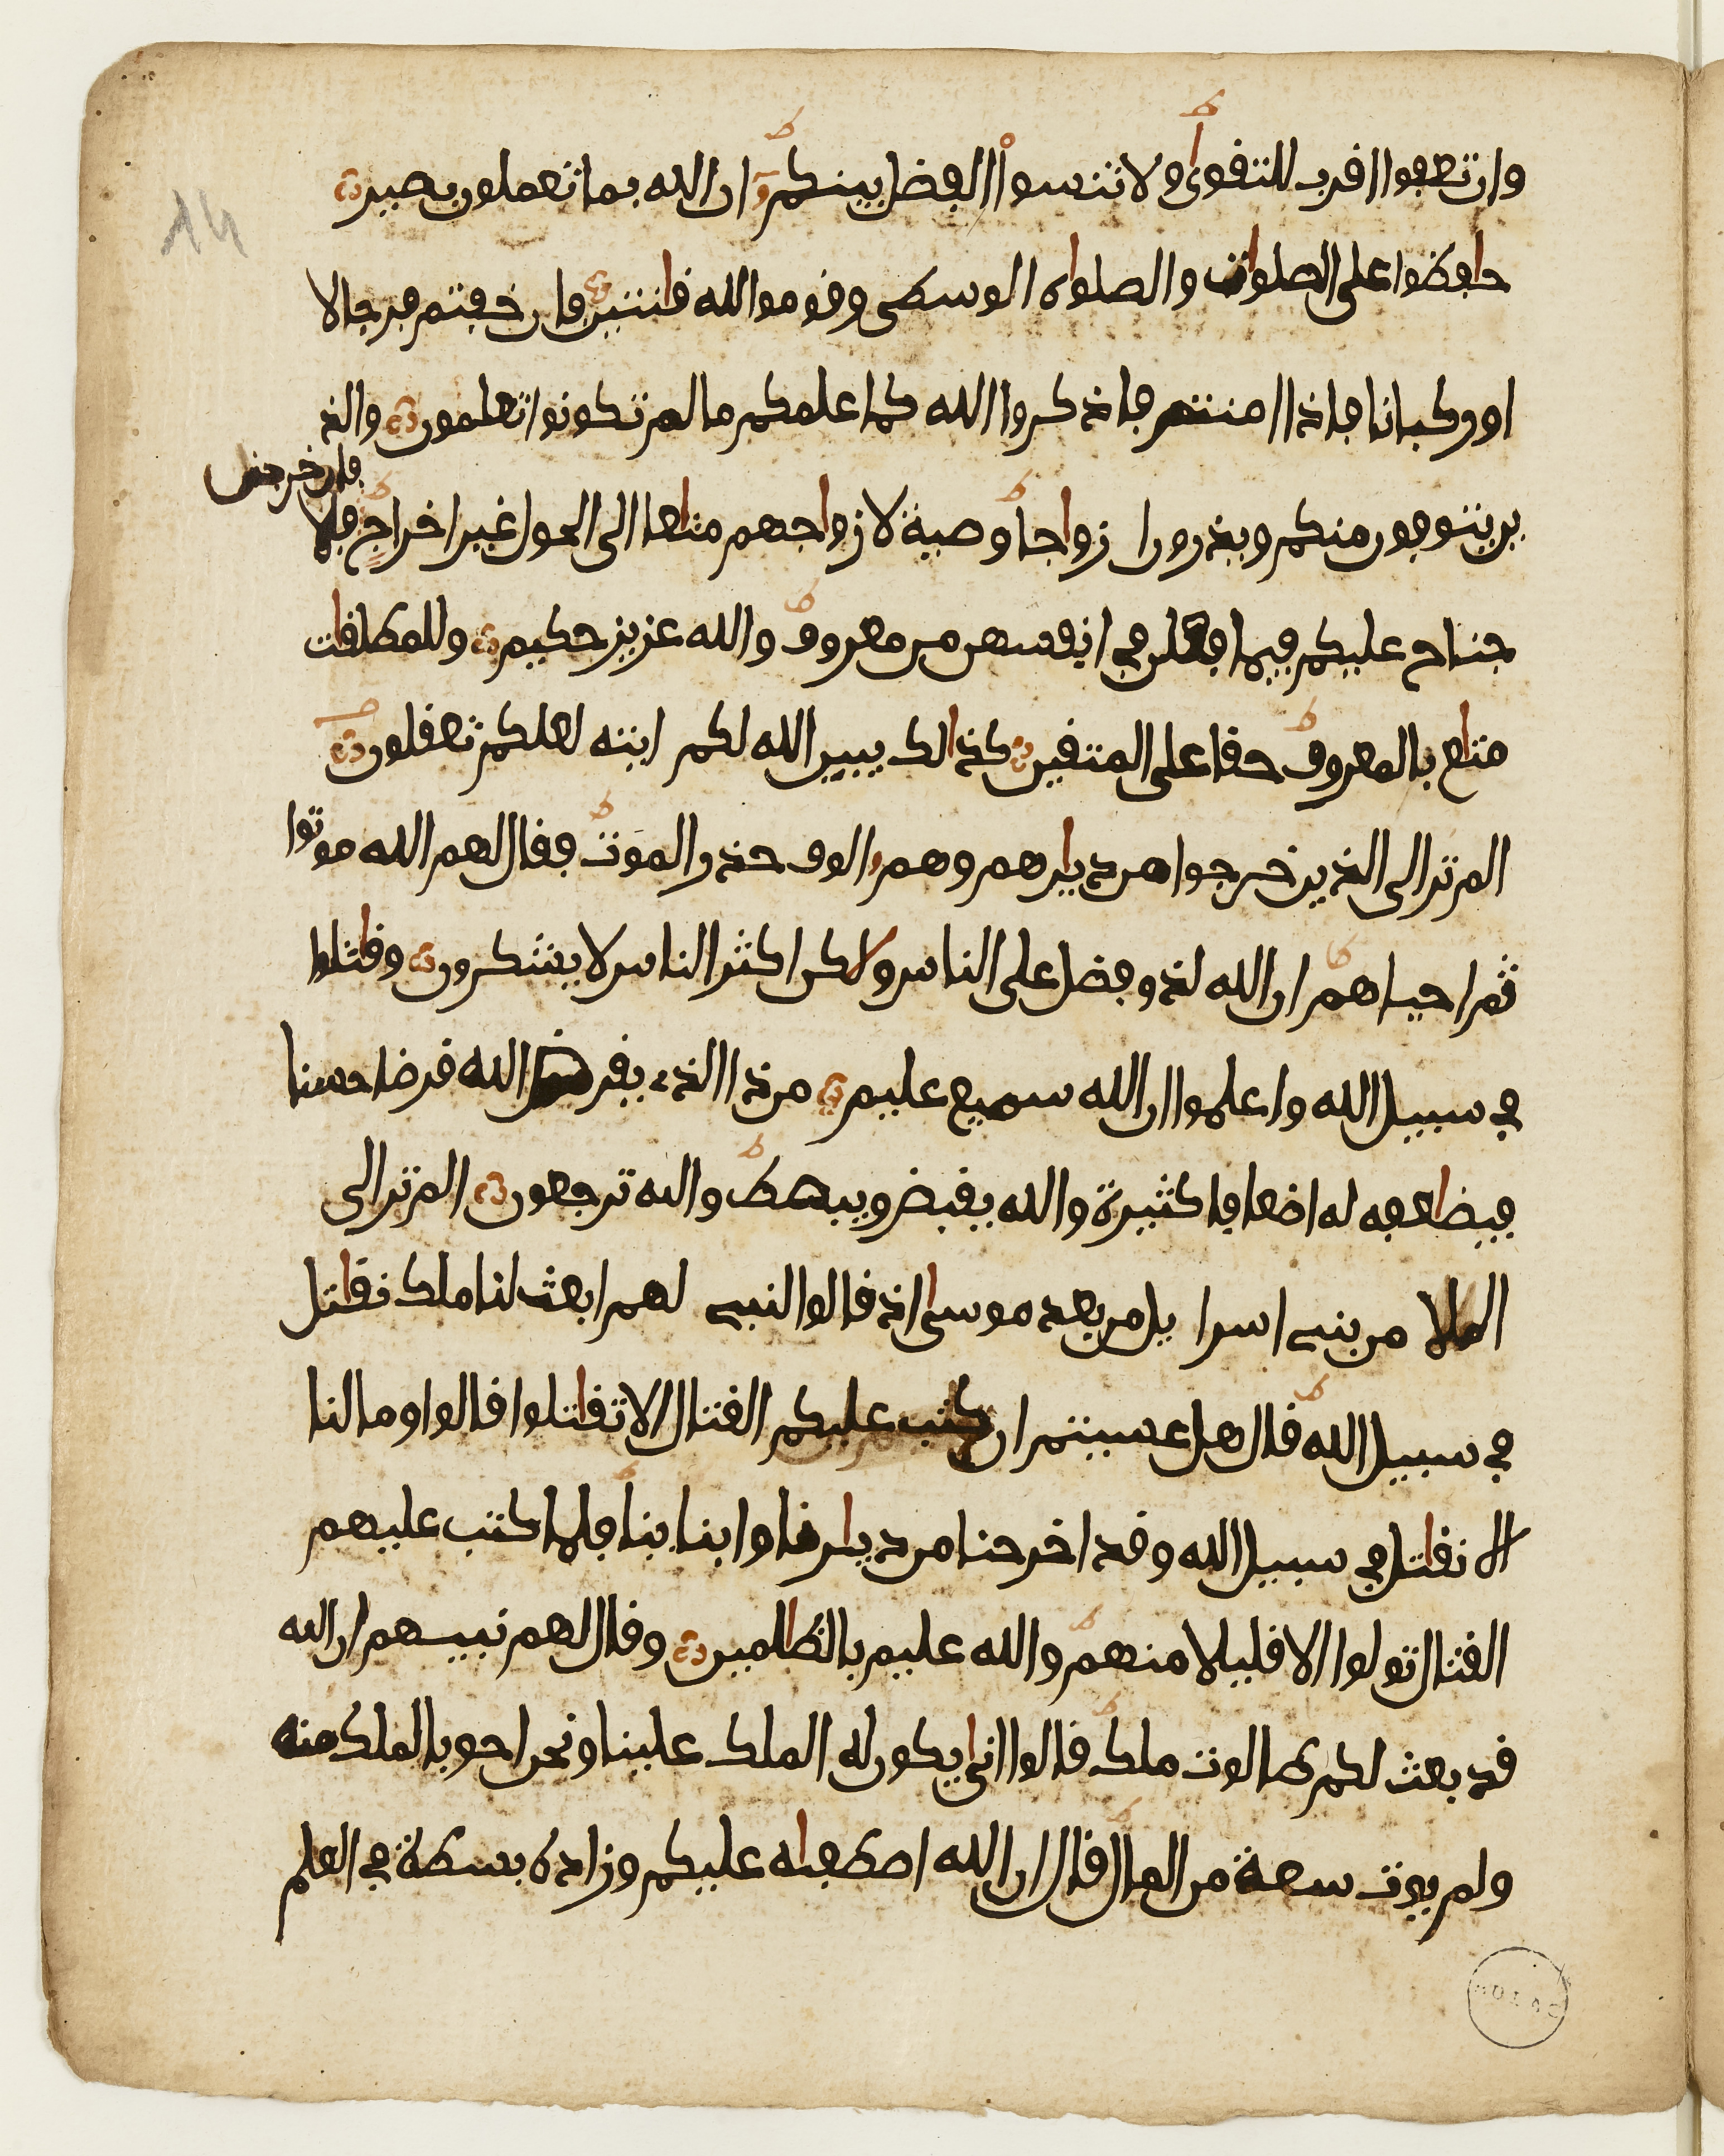 وان تعفوا اقرب للتقوى ولا تنسوا الفضل بينكم ان الله بما تعملون بصير
حافظوا على الصلوات والصلواة الوسطى وقوموا لله قانتين فان خفتم فرجالا
او ركبانا فاذا امنتم فاذكروا الله كما علمكم ما لم تكونوا تعلمون والذ
فان خرجن
ين يتوفون منكم ويذرون ازواجا وصية لازواجهم متاعا الى الحول غير اخراج فلا
جناح عليكم فيما فعلن في انفسهن من معروف والله عزيز حكيم وللمطلقات
متاع بالمعروف حقا على المتقين كذالك يبين الله لكم ايته لعلكم تعقلون
الم تر الى الذين خرجوا من ديارهم وهم الوف حذر الموت فقال لهم الله موتوا
ثم احياهم ان الله لذو فضل على الناس ولاكن اكثر الناس لا يشكرون وقاتلوا
في سبيل الله واعلموا ان الله سميع عليم من ذا الذي يقرض الله قرضا حسنا
فيضاعفه له اضعافا كثيرة والله يقبض ويبصط واليه ترجعون الم تر الى
الملا من بني اسرا يل من بعد موسى اذ قالوا لنبي لهم ابعث لنا ملكا نقاتل
في سبيل الله قال هل عسيتم ان كتب عليكم القتال الا تقاتلوا قالوا وما لنا
الا نقاتل في سبيل الله وقد اخرجنا من ديارنا وابناينا فلما كتب عليهم
القتال تولوا الا قليلا منهم والله عليم بالظالمين وقال لهم نبيهم ان الله
قد بعث لكم طالوت ملكا قالوا انى يكون له الملك علينا ونحن احق بالملك منه
ولم يوت سعة من المال قال ان الله اصطفاه عليكم وزاده بسطة في العلم